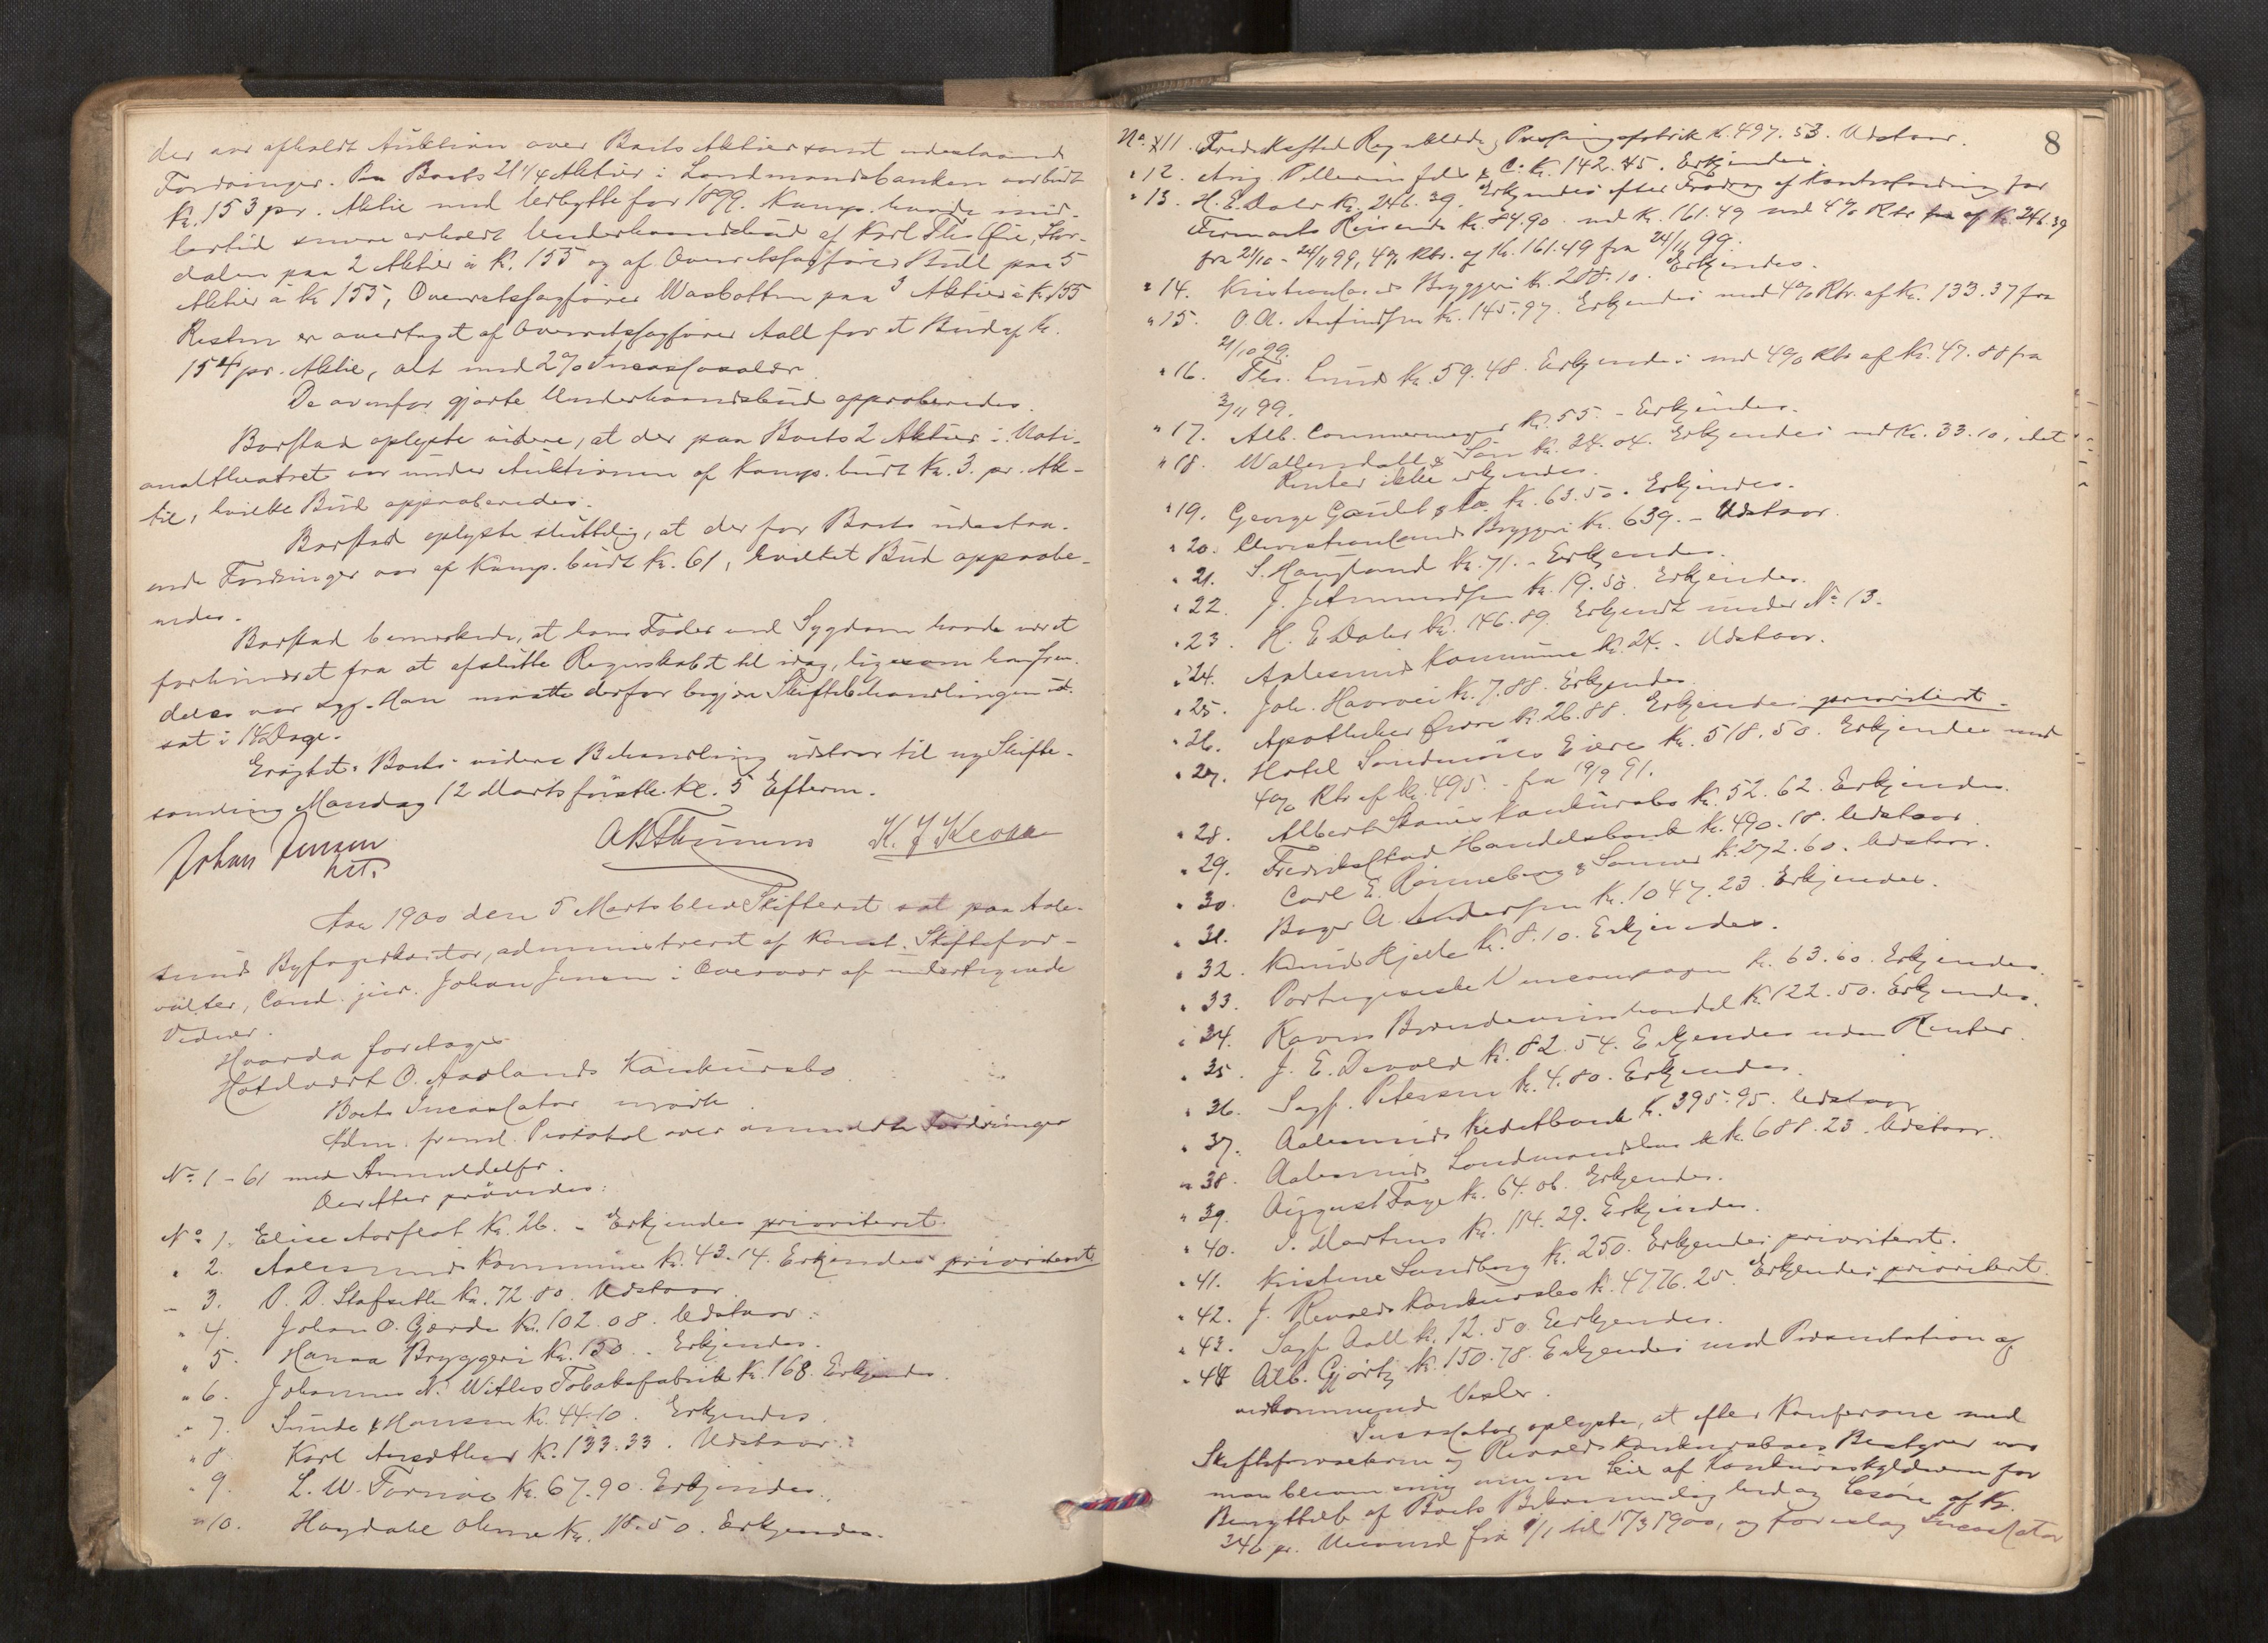 der var afholdt Auktion over Boets Aktier samt udestaaende
Fordringer. Paa Boets 21 1/4 Aktier i Landmandsbanken var budt
Kr. 153 pr. Aktie med Udbytte for 1899. Kamp. havde imid-
lertid senere erholdt Underhaandsbud af Karl Ths Øie, Stor-
dalen paa 2 Aktier à Kr. 155 og af Overretssagfører Bull paa 5
Aktier à Kr 155, Overretssagfører Wasbotten paa 3 Aktier à Kr. 155
Resten er overtaget af Overretssagfører Aall for et Bud af Kr.
154 pr. Aktie, alt med 2% Incassosalær.
De ovenfor gjorte Underhaandsbud approberedes.
Barstad oplyste videre, at der paa Boets 2 Aktier i Nati-
onaltheatret var under Auktionen af Kamp. budt Kr. 3. pr. Ak-
tie, hvilke Bud approberedes.
Barstad oplyste sluttelig, at der for Boets udestaa-
ende Fordringer var af Kamp. budt Kr. 61, hvilket Bud approbe-
redes.
Barstad bemærkede, at hans Fader ved Sygdom havde været
forhindret fra at afslutte Regnskabet til idag, ligesom han frem-
deles var syg. Han maatte derfor begjære Skiftebehandlingen ud-
sat i 14 Dage.
Eragtet: Boets videre Behandling udstaar til ny Skifte-
samling Mandag 12 Marts førstk. Kl. 5 Efterm.
Johan Jensen
kst.
K. J. Kloxen
Aar 1900 den 5 Marts blev Skifteret sat paa Aale-
sunds Byfogedkontor, administreret af Konst. Skiftefor-
valter, Cand. jur. Johan Jensen i Overvær af undertegnede
Vidner.
Hvorda foretoges
Hotelvært O. Aadlands Konkursbo.
Boets Incassator mødte.
Adm. freml. Protokol over anmeldte Fordringer
No 1-61 med Anmeldelser.
Derefter prøvedes:
No 1. Elise Aarflot Kr. 26. - Erkjendes prioriteret.
" 2. Aalesunds Kommune Kr. 43.14. Erkjendes prioriteret
" 3. P. D. Slafsethe Kr. 72.80. Udstaar.
" 4. Johan O. Gjerde Kr. 102.08. Udstaar.
" 5. Hansa Bryggeri Kr. 150. - Erkjendes.
" 6. Johannes N. Withs Tobaksfabrik Kr. 168. Erkjendes.
" 7. Sunde & Hansen Kr. 44.10. Erkjendes.
" 8 Karl Kr. 133.33. Udstaar.
" 9. L. W. Kr. 67.90. Erkjendes.
" 10. Høydahl Ohme Kr. 18.50. Erkjendes.
8
No. 11. Fredrikstad Kr. 497.53. Udstaar.
" 12. Aug. Pellerin fils & Co. Kr. 142.45. Erkjendes.
" 13. H. E. Daler Kr. 246.39. Erkjendes efter Fradrag af Kontrafordring for
Firmaets Reisende Kr. 84.90 med Kr. 161.49 med 4% Rtr. af Kr. 246.39
fra 21/10 - 24/11 99, 4% Rtr. af Kr. 161.49 fra 24/11 99.
" 14. Kristianssunds Bryggeri Kr. 288.10. Erkjendes.
" 15. O. A. Anfindsen Kr. 145.97. Erkjendes med 4% Rtr. af Kr. 133.37 fra
21/10 99.
" 16. Ths. Lund Kr. 59.48. Erkjendes med 4% Rtr af Kr. 47.88 fra
3/11 99.
" 17. Alb. Commermeyer Kr. 55. - Erkjendes.
" 18. Wallendahl & Søn Kr. 34.04. Erkjendes med Kr. 33.10, idet
Renter ikke erkjendes.
" 19. George Goulet & Co. Kr. 63.50. Erkjendes.
" 20. Christianssunds Bryggeri Kr. 639. - Udstaar.
" 21. S. Haugland Kr. 71. - Erkjendes.
" 22. J. J. Amundsen Kr. 19.50. Erkjendes.
" 23. H. E. Daler Kr. 146.89 Erkjendt under No 13.
" 24. Aalesunds Kommune Kr. 24. - Udstaar.
" 25. Joh. Hareide Kr. 7.88. Erkjendes.
" 26. Apotheker Øvre Kr. 26.88. Erkjendes prioriteret.
" 27. Hotel Søndmøres Eiere Kr. 518.50. Erkjendes med
4% Rtr af Kr. 495. - fra 19/9 91.
" 28. Albert Konkursbo Kr. 52.62. Erkjendes.
" 29. Fredrikstad Handelsbank Kr. 490.18. Udstaar.
" 30. Carl E. Rønneberg & Sønner Kr. 272.60. Udstaar.
" 31. Bager A. Andersen Kr. 1047.23. Erkjendes.
" 32. Knud Hjelle Kr. 8.10. Erkjendes.
" 33. Portugisiske Vincompagni Kr. 63.60. Erkjendes.
" 34. Ravns Brændevinshandel Kr. 122.50. Erkjendes.
" 35. J. E. Devold Kr. 82.54. Erkjendes uden Renter.
" 36. Sagf. Petersen Kr. 4.80. Erkjendes.
" 37. Aalesunds Kreditbank Kr. 395.95. Udstaar
" 38. Aalesunds Landmandsbank Kr. 688.23. Udstaar.
" 39. August Fage Kr. 64.06. Erkjendes.
" 40. J. Martens Kr. 114.29. Erkjendes.
" 41. Kristine Sandberg Kr. 250. Erkjendes prioriteret.
" 42. J. Revolds Konkursbo Kr. 4776.25. Erkjendes prioriteret.
" 43. Sagf. Aall Kr. 12.50. Erkjendes.
" 44 Alb. Gjørtz Kr. 150.78. Erkjendes mod Præsentation af
vedkommende Vexler.
Incassator oplyste, at efter Konferanse med
Skifteforvalteren og Revolds Konkursboes Bestyrer var
man bleven enig om en Leie af Konkursskyldneren for
Benyttelse af Boets Beværtning og Løsøre af Kr.
346 pr. Maaned fra 1/1 til 15/3 1900, og foreslog Incassator